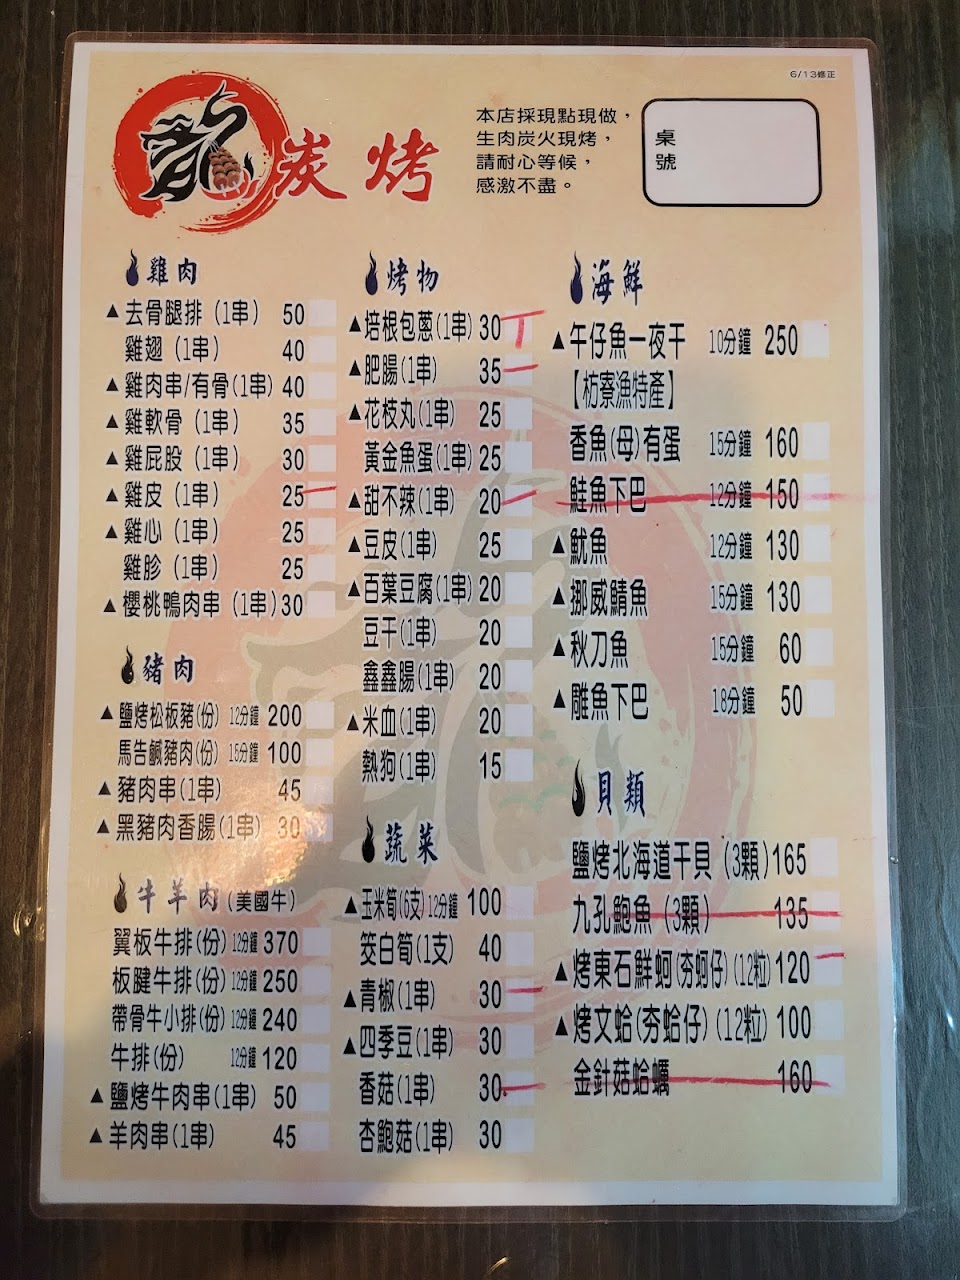 6/13修正
龍炭烤
本店採現點現做，
生肉炭火現烤，
請耐心等候，
感激不盡。
桌
號
雞肉
▲去骨腿排（1串） 50
雞翅（1串） 40
▲雞肉串/有骨(1串) 40
▲雞軟骨（1串） 35
▲雞屁股（1串） 30
▲雞皮（1串） 25
▲雞心（1串） 25
雞胗（1串） 25
▲櫻桃鴨肉串（1串）30
豬肉
▲鹽烤松板豬(份) 12分鐘 200
馬告鹹豬肉(份) 15分鐘 100
▲豬肉串(1串) 45
▲黑豬肉香腸(1串) 30
牛羊肉(美國牛)
翼板牛排(份) 12分鐘 370
板腱牛排(份) 12分鐘 250
帶骨牛小排(份) 12分鐘 240
牛排(份) 12分鐘 120
▲鹽烤牛肉串(1串) 50
▲羊肉串(1串) 45
烤物
▲培根包蔥(1串) 30
▲肥腸(1串) 35
▲花枝丸(1串) 25
黃金魚蛋(1串) 25
▲甜不辣(1串) 20
▲豆皮(1串) 25
▲百葉豆腐(1串) 20
豆干(1串) 20
鑫鑫腸(1串) 20
▲米血(1串) 20
熱狗(1串) 15
蔬菜
▲玉米筍(6支)12分鐘 100
筊白筍(1支) 40
▲青椒(1串) 30
▲四季豆(1串) 30
香菇(1串) 30
杏鮑菇(1串) 30
海鮮
▲午仔魚一夜干 10分鐘 250
【枋寮漁特產】
香魚(母)有蛋 15分鐘 160
鮭魚下巴 12分鐘 150
▲魷魚 12分鐘 130
▲挪威鯖魚 15分鐘 130
▲秋刀魚 15分鐘 60
▲雕魚下巴 18分鐘 50
貝類
鹽烤北海道干貝（3顆)165
九孔鮑魚（3顆） 135
▲烤東石鮮蚵(夯蚵仔)(12粒)120
▲烤文蛤(夯蛤仔)(12粒) 100
金針菇蛤蠣 160